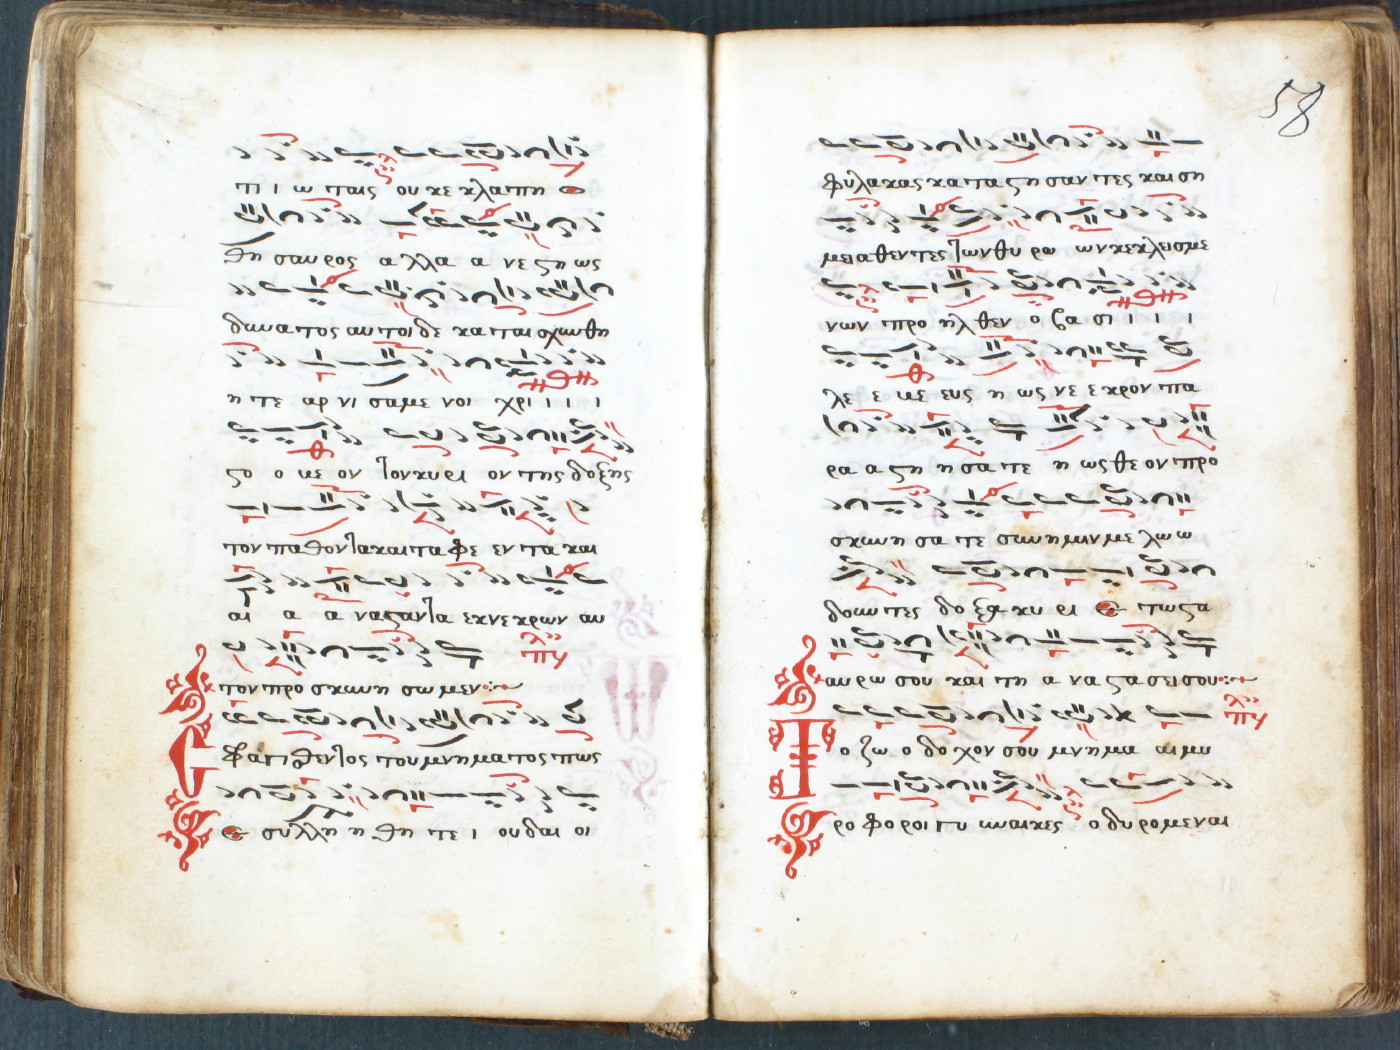 πι ι ω ταις ου κε κλα πη ο
θη σαυρος α λλα α νε ϛη ως
δυνατος αυτοι δε κα ται σχυνθη
η τε αρ νι σαμε νοι χρι ι ι ι
ϛο ο με ον τον κυρι ον της δοξης
τον παθοντα και τα φε εν τα και
αι α α ναϛαντα εκ νε κρων αυ
τον προ σκυνη σω μεν
φα τι θεντος του μνηματος πως
ε συλλη η θη τε ι ουδαι οι
58
φυλακας κα τα ϛη σαν τες και ση
μεια θεν τες των θυ ρω ων κεκλεισμε
νων προ ηλθεν ο βα σι ι ι ι
λε ε με ευς η ως νε ε κρον πα
ρα α ϛη η σα τε η ως θε ον προ
σκυνη σα τε συν ημιν με λωω
δουντες δο ξα κυ ρι ε τω ϛα
αυρω σου και τη α να ϛα σει σου
Το ζω ο δο χον σου μνημα αι μυ
ρο φο ροι γυ υναικες ο δυ ρομεναι